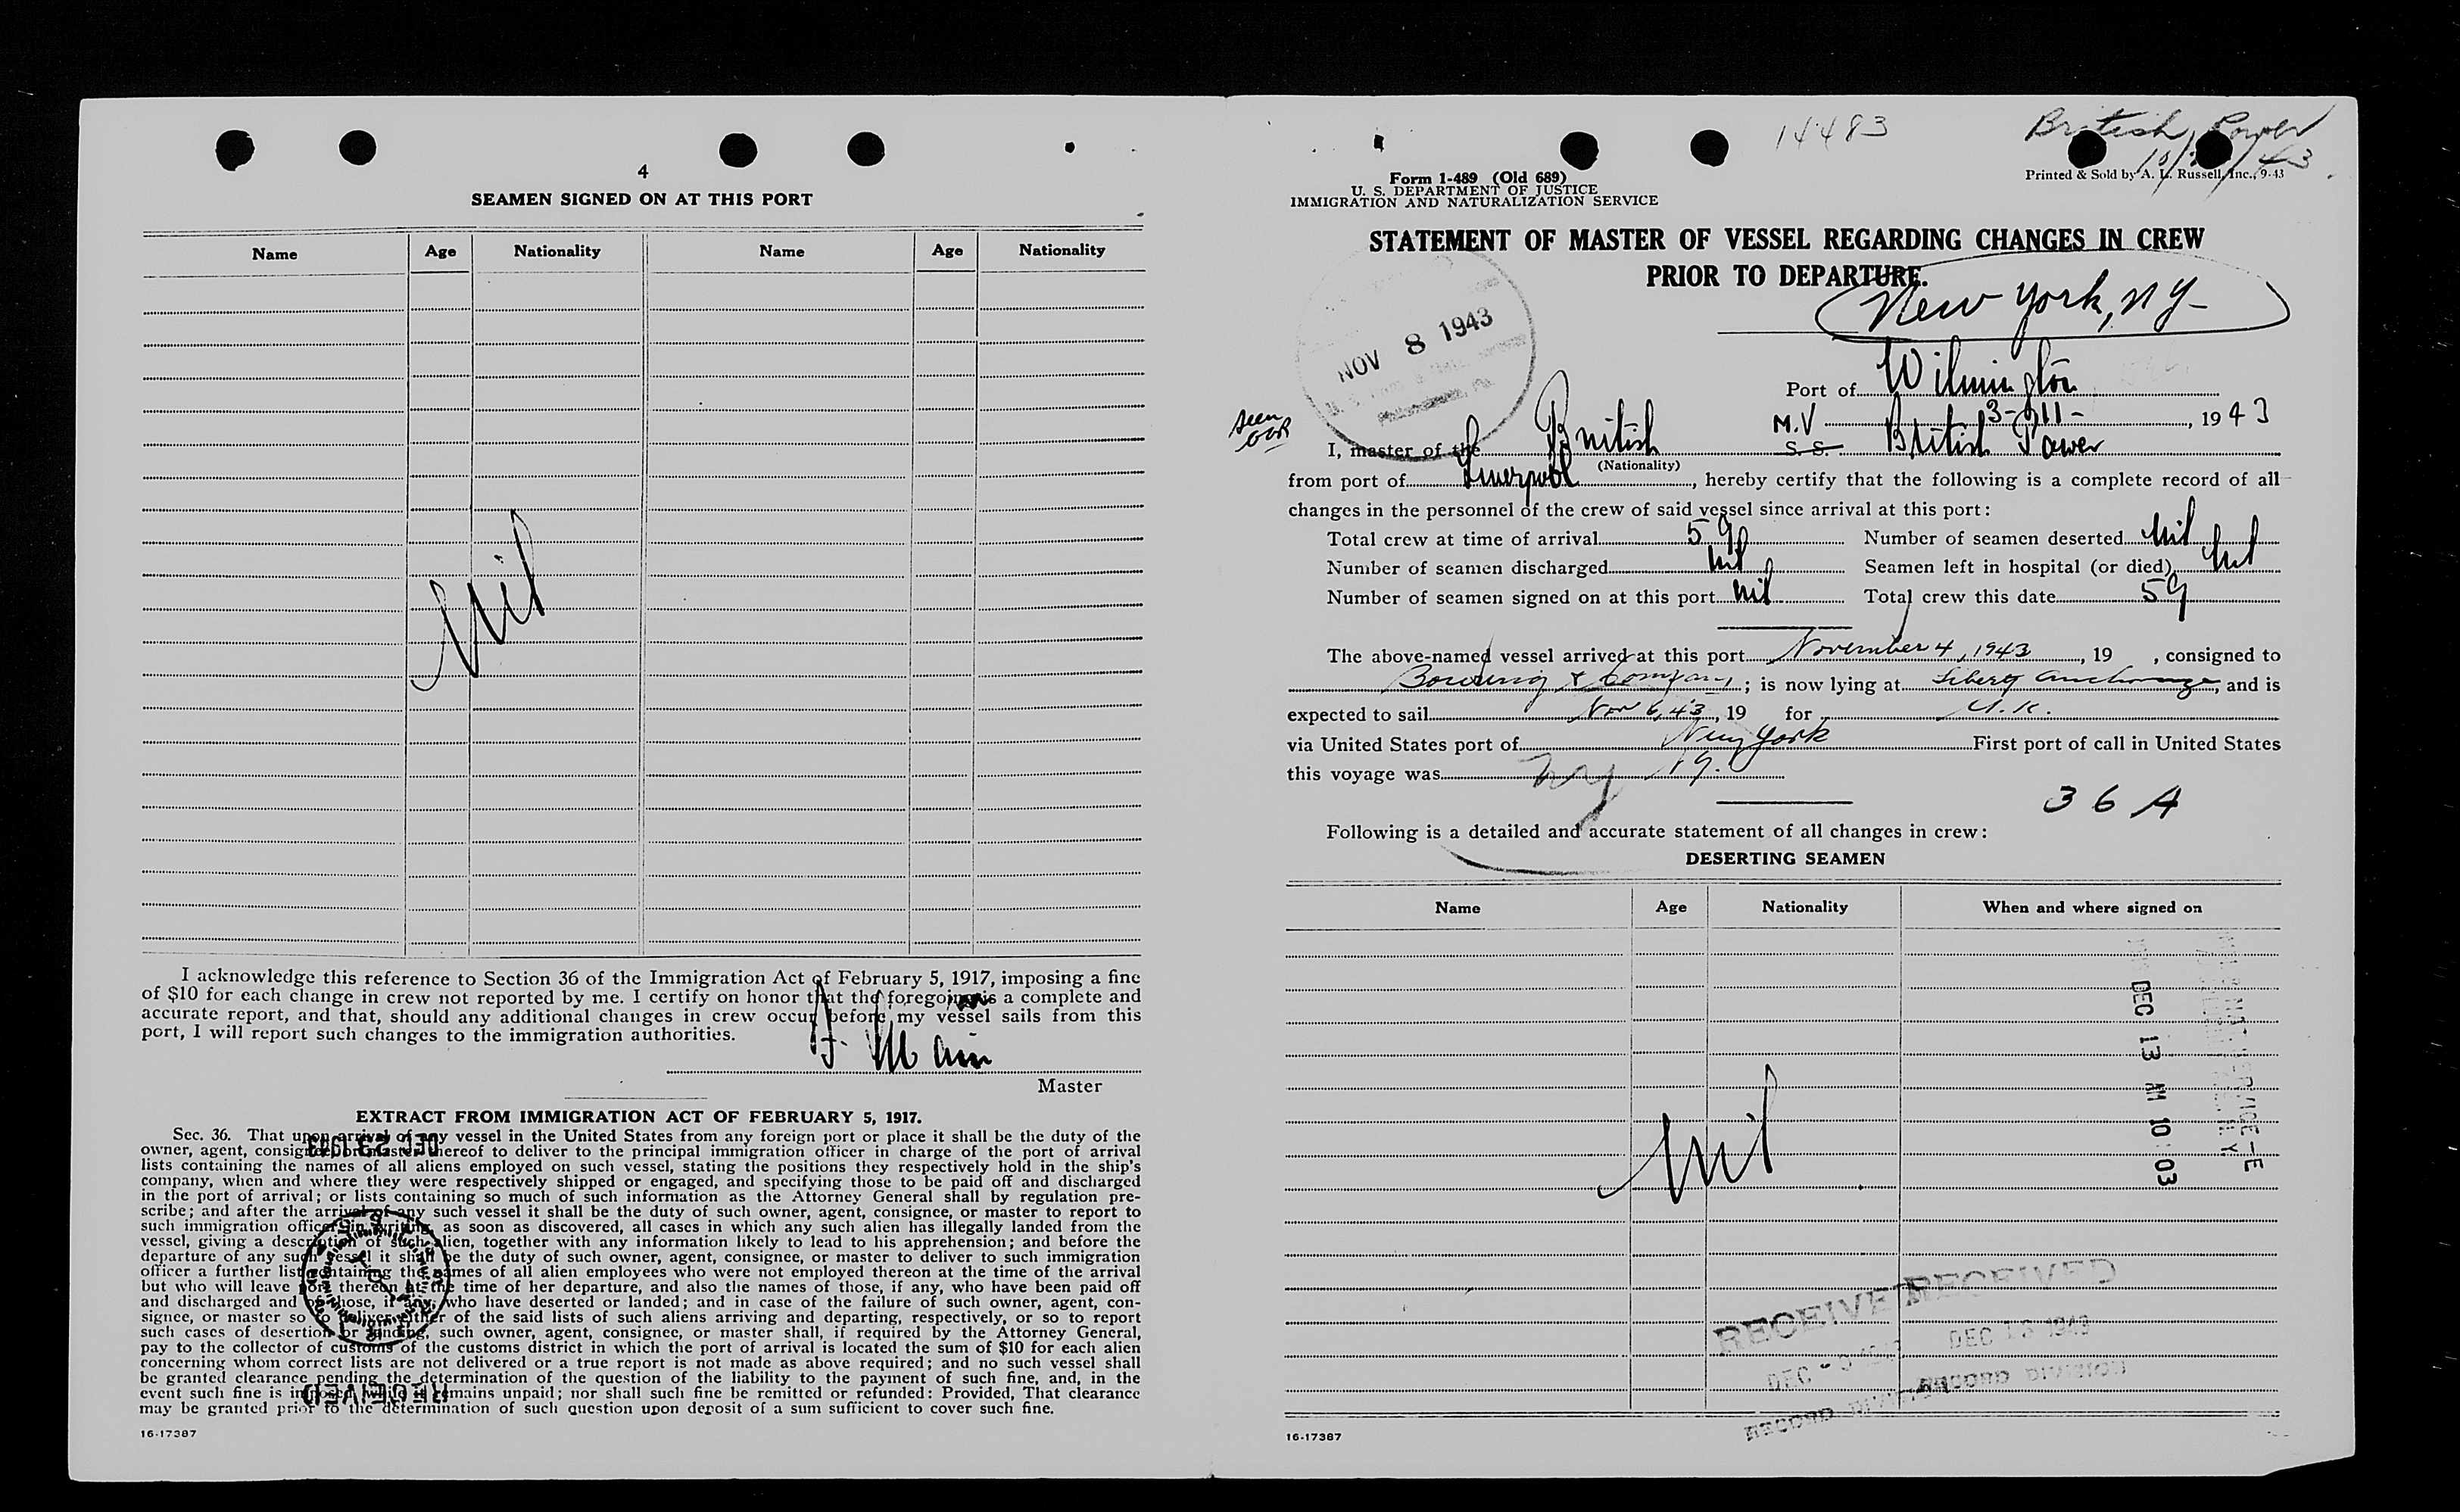 4
SEAMEN SIGNED ON AT THIS PORT
Name Age Nationality Name Age Nationality
Nil
I acknowledge this reference to Section 36 of the Immigration Act of February 5, 1917, imposing a fine
of $10 for each change in crew not reported by me. I certify on honor that the foregoing is a complete and
accurate report, and that, should any additional changes in crew occur before my vessel sails from this
port, I will report such changes to the immigration authorities.
Master
EXTRACT FROM IMMIGRATION ACT OF FEBRUARY 5, 1917.
Sec. 36. That upon arrival of any vessel in the United States from any foreign port or place it shall be the duty of the
owner, agent, consignee, or master thereof to deliver to the principal immigration officer in charge of the port of arrival
lists containing the names of all aliens employed on such vessel, stating the positions they respectively hold in the ship's
company, when and where they were respectively shipped or engaged, and specifying those to be paid off and discharged
in the port of arrival; or lists containing so much of such information as the Attorney General shall by regulation pre-
scribe; and after the arrival of any such vessel it shall be the duty of such owner, agent, consignee, or master to report to
such immigration officer, in writing, as soon as discovered, all cases in which any such alien has illegally landed from the
vessel, giving a description of such alien, together with any information likely to lead to his apprehension; and before the
departure of any such vessel it shall be the duty of such owner, agent, consignee, or master to deliver to such immigration
officer a further list containing the names of all alien employees who were not employed thereon at the time of the arrival
but who will leave port thereon at the time of her departure, and also the names of those, if any, who have been paid off
and discharged and of those, if any, who have deserted or landed; and in case of the failure of such owner, agent, con-
signee, or master so to deliver either of the said lists of such aliens arriving and departing, respectively, or so to report
such cases of desertion or landing, such owner, agent, consignee, or master shall, if required by the Attorney General,
pay to the collector of customs of the customs district in which the port of arrival is located the sum of $10 for each alien
concerning whom correct lists are not delivered or a true report is not made as above required; and no such vessel shall
be granted clearance pending the determination of the question of the liability to the payment of such fine, and, in the
event such fine is imposed, while it remains unpaid; nor shall such fine be remitted or refunded: Provided, That clearance
may be granted prior to the determination of such question upon deposit of a sum sufficient to cover such fine.
DEC 23 1943
RECEIVED
16-17387
14483
British Power
Form I-489 (Old 689)
U. S. DEPARTMENT OF JUSTICE
IMMIGRATION AND NATURALIZATION SERVICE
Printed & Sold by A. L. Russell, Inc., 9-43
STATEMENT OF MASTER OF VESSEL REGARDING CHANGES IN CREW
PRIOR TO DEPARTURE.
New York, NY
NOV 8 1943
Port of Wilmington
3-11-, 1943
Seen
I, master of the British M.V S.S. British Power
(Nationality)
from port of Liverpool, hereby certify that the following is a complete record of all
changes in the personnel of the crew of said vessel since arrival at this port:
Total crew at time of arrival 59 Number of seamen deserted Nil
Number of seamen discharged Nil Seamen left in hospital (or died) Nil
Number of seamen signed on at this port nil Total crew this date 59
The above-named vessel arrived at this port November 4, 1943, 19 , consigned to
& Company; is now lying at Anchorage, and is
expected to sail Nov 6, 43, 19 for U.K.
via United States port of New York First port of call in United States
this voyage was NY
36A
Following is a detailed and accurate statement of all changes in crew:
DESERTING SEAMEN
Name Age Nationality When and where signed on
Nil
DEC 13 AM 10 03
RECEIVED RECEIVED
DEC DEC 13 1943
RECORD DIVISION RECORD DIVISION
16-17387